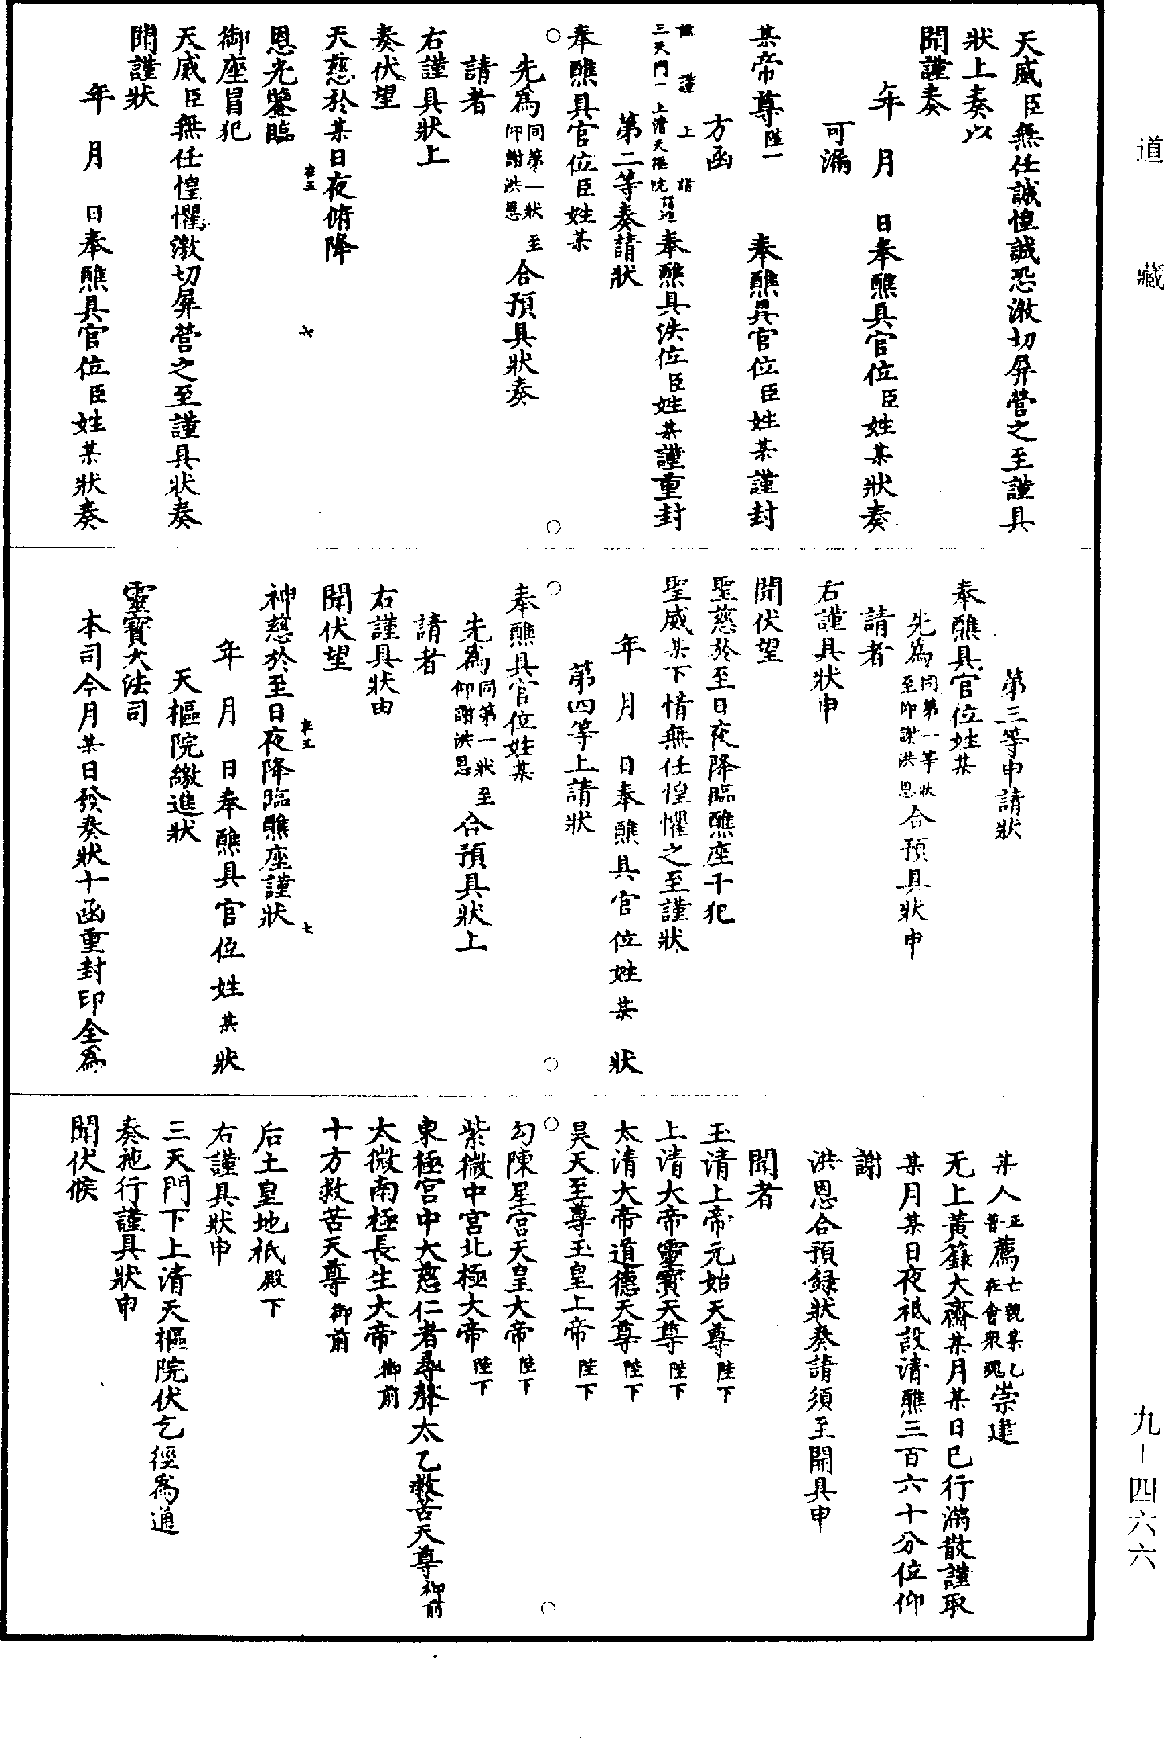 道藏
九－四六六
天威臣無任誠惶誠恐激切屏營之至謹具
狀上奏以
聞謹奏
年　月　日奉醮具官位臣姓某狀奏
可漏
某帝尊陛一　奉醮具官位臣姓某謹封
方函
謹謹上請
三天門一上清天樞院　奉醮具法位臣姓某謹重封
第二等奏請狀
奉醮具官位臣姓某
先為同第一狀至仰謝洪恩合預具狀奏
請者
右謹具狀上
奏伏望
天慈於某日夜俯降
恩光鑒臨
御座冒犯
天威臣無任惶懼激切屏營之至謹具狀奏
聞謹狀
年　月　日奉醮具官位臣姓某狀奏
第三等申請狀
奉醮具官位姓某
先為同第一等狀至仰謝洪恩合預具狀申
請者
右謹具狀申
聞伏望
聖慈於至日夜降臨醮座干犯
聖威某下情無任惶懼之至謹狀
年　月　日奉醮具官位姓某　狀
第四等上請狀
奉醮具官位姓某
先為同第一狀至仰謝洪恩合預具狀上
請者
右謹具狀由
聞伏望
神慈於至日夜降臨醮座謹狀
年　月　日奉醮具官位姓某狀
天樞院繳進狀
靈寶大法司
本司今月某日發奏狀十函重封印全為
某人正薦亡親某乙普薦在會眾魂崇建
无上黃籙大齋某月某日已行滿散謹取
某月某日夜祗設清醮三百六十分位仰
謝
洪恩合預錄狀奏請須至開具申
聞者
玉清上帝元始天尊陛下
上清大帝靈寶天尊陛下
太清大帝道德天尊陛下
昊天至尊玉皇上帝陛下
勾陳星宮天皇大帝陛下
紫微中宮北極大帝陛下
東極宮中大慈仁者尋聲太乙救苦天尊御前
太微南極長生大帝御前
十方救苦天尊御前
后土皇地祇殿下
右謹具狀申
三天門下上清天樞院伏乞徑為通
奏施行謹具狀申
聞伏候